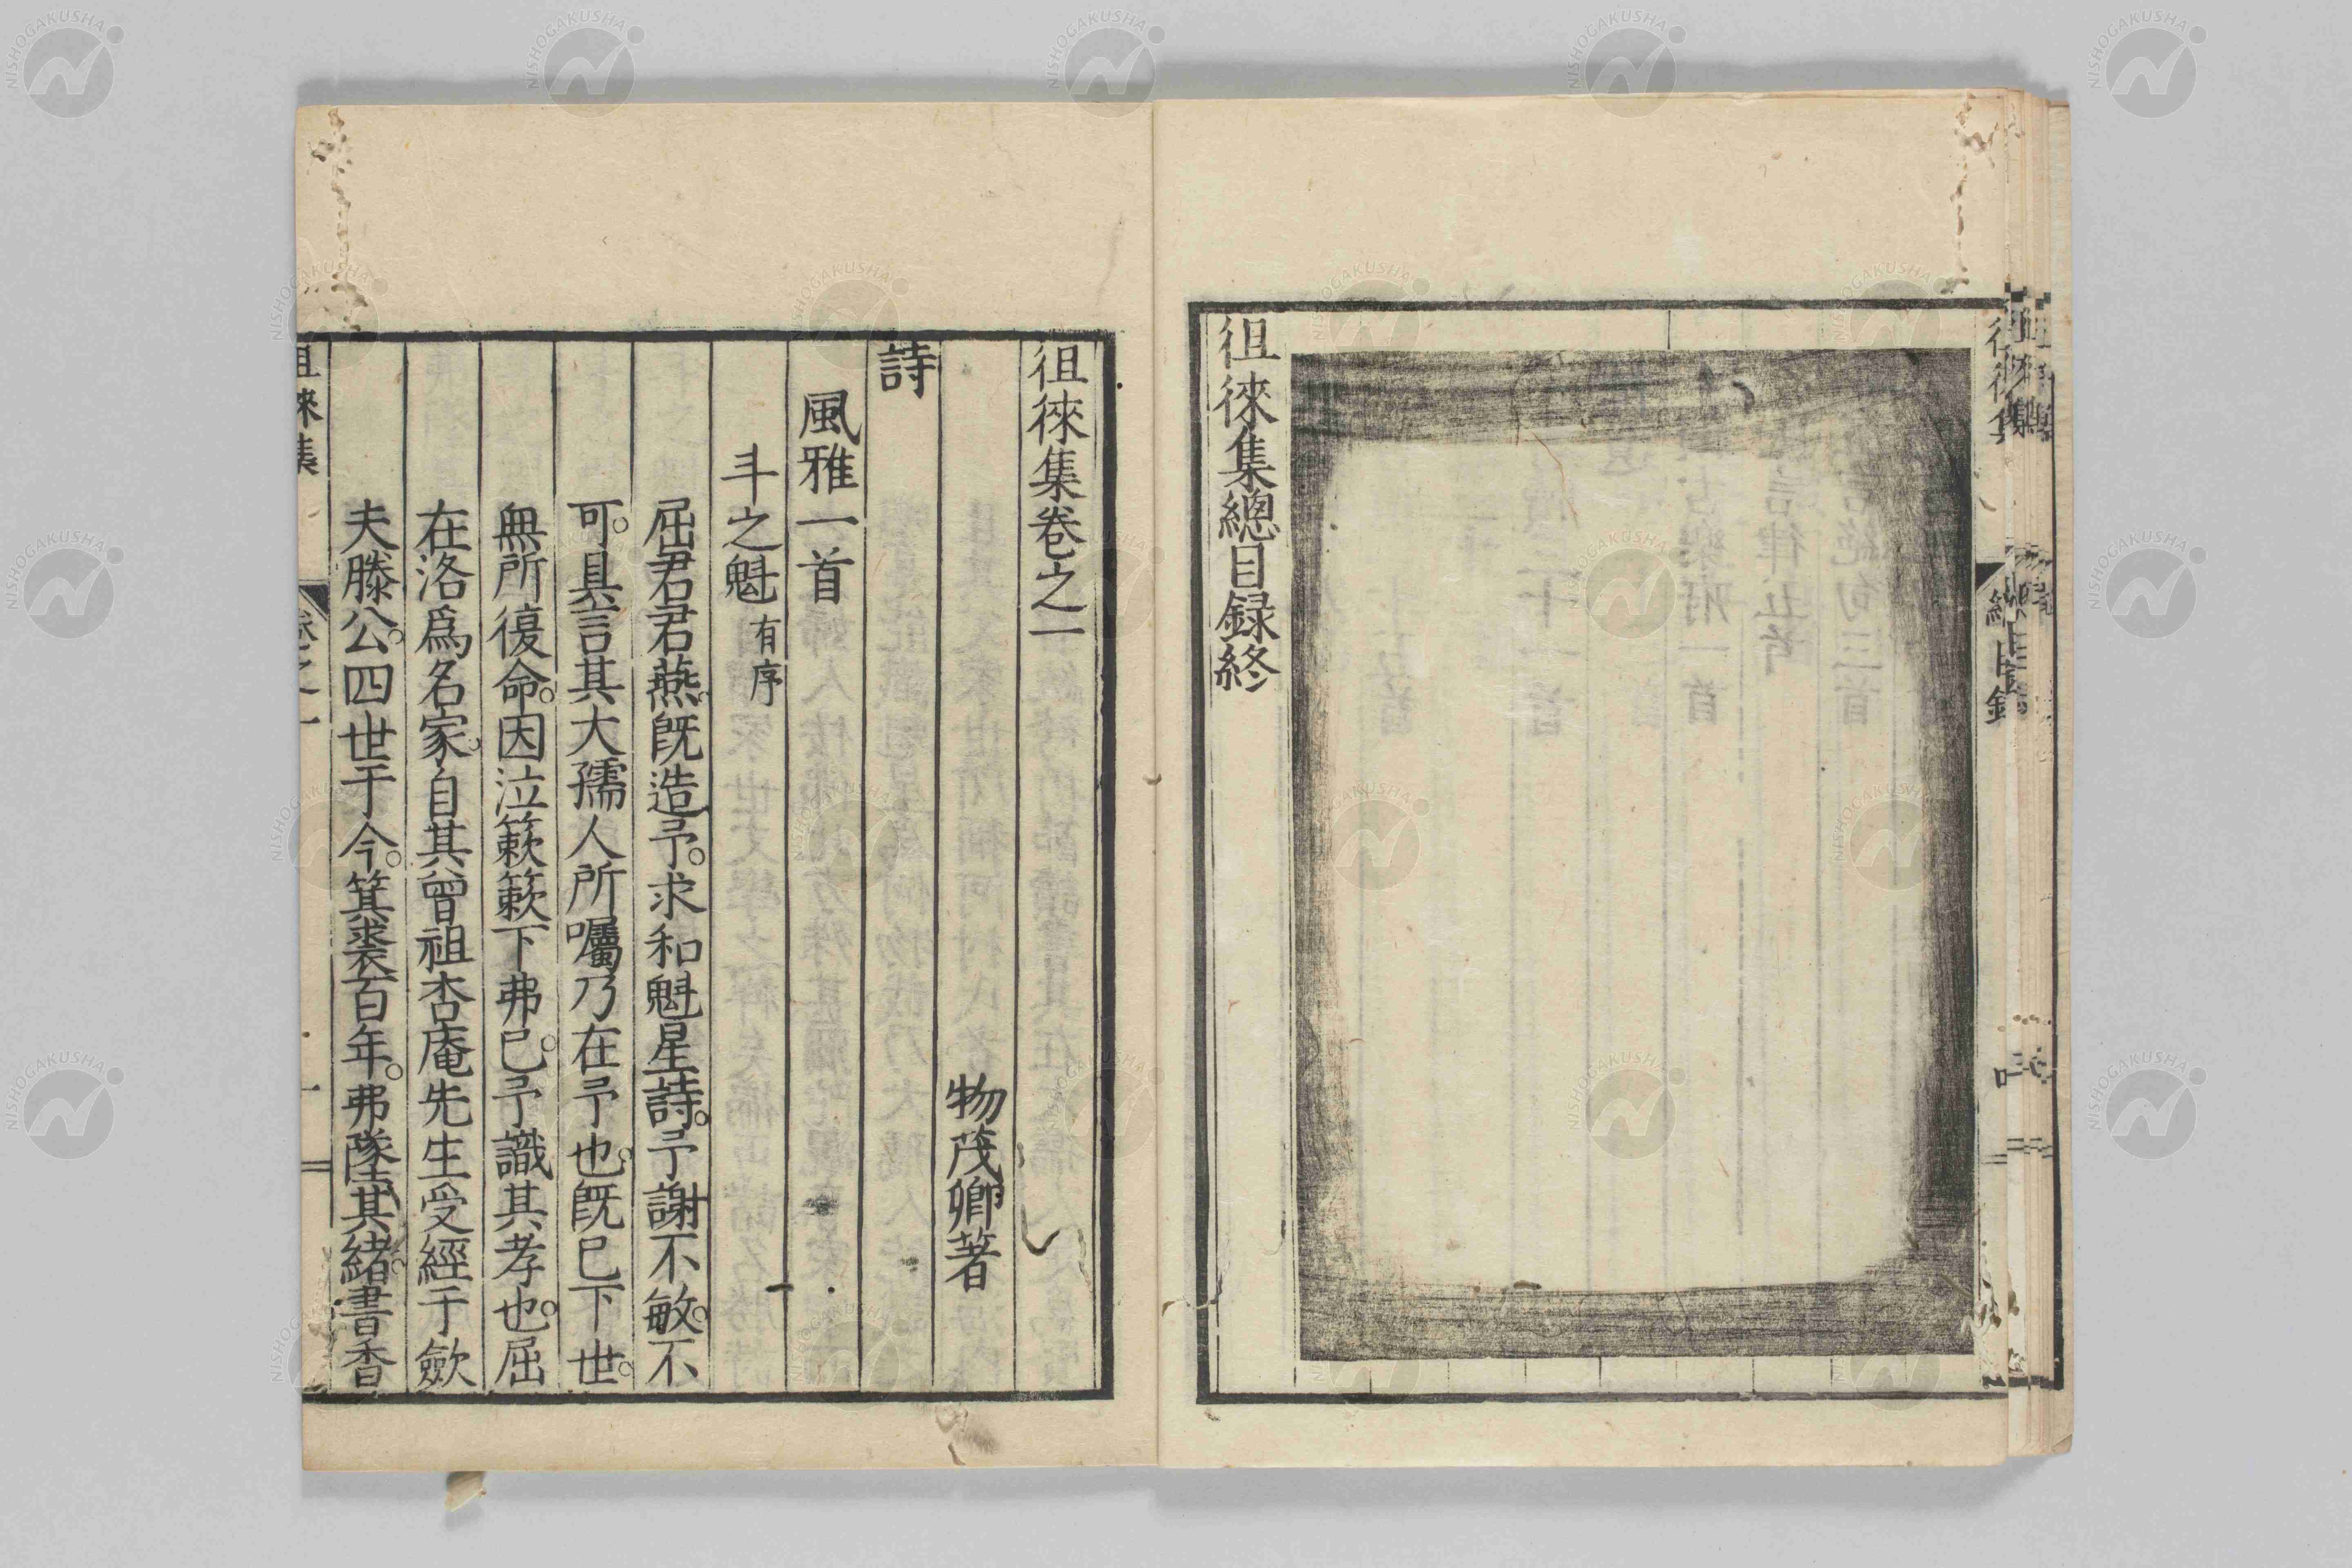 徂徠集總目録終
徂徠集卷之一
物茂卿著
詩
風雅一首
斗之魁有序
屈君君燕。既造予。求和魁星詩。予謝不敏。不
可。具言其大孺人所囑乃在予也。既已下世。
無所復命。因泣簌簌下弗已。予識其孝也。屈
在洛爲名家。自其曾祖杏庵先生受經于歛
夫滕公。四世于今。箕裘百年。弗墜其緒。書香
徂徠集
卷之一
一
NISHOGAKUSHA